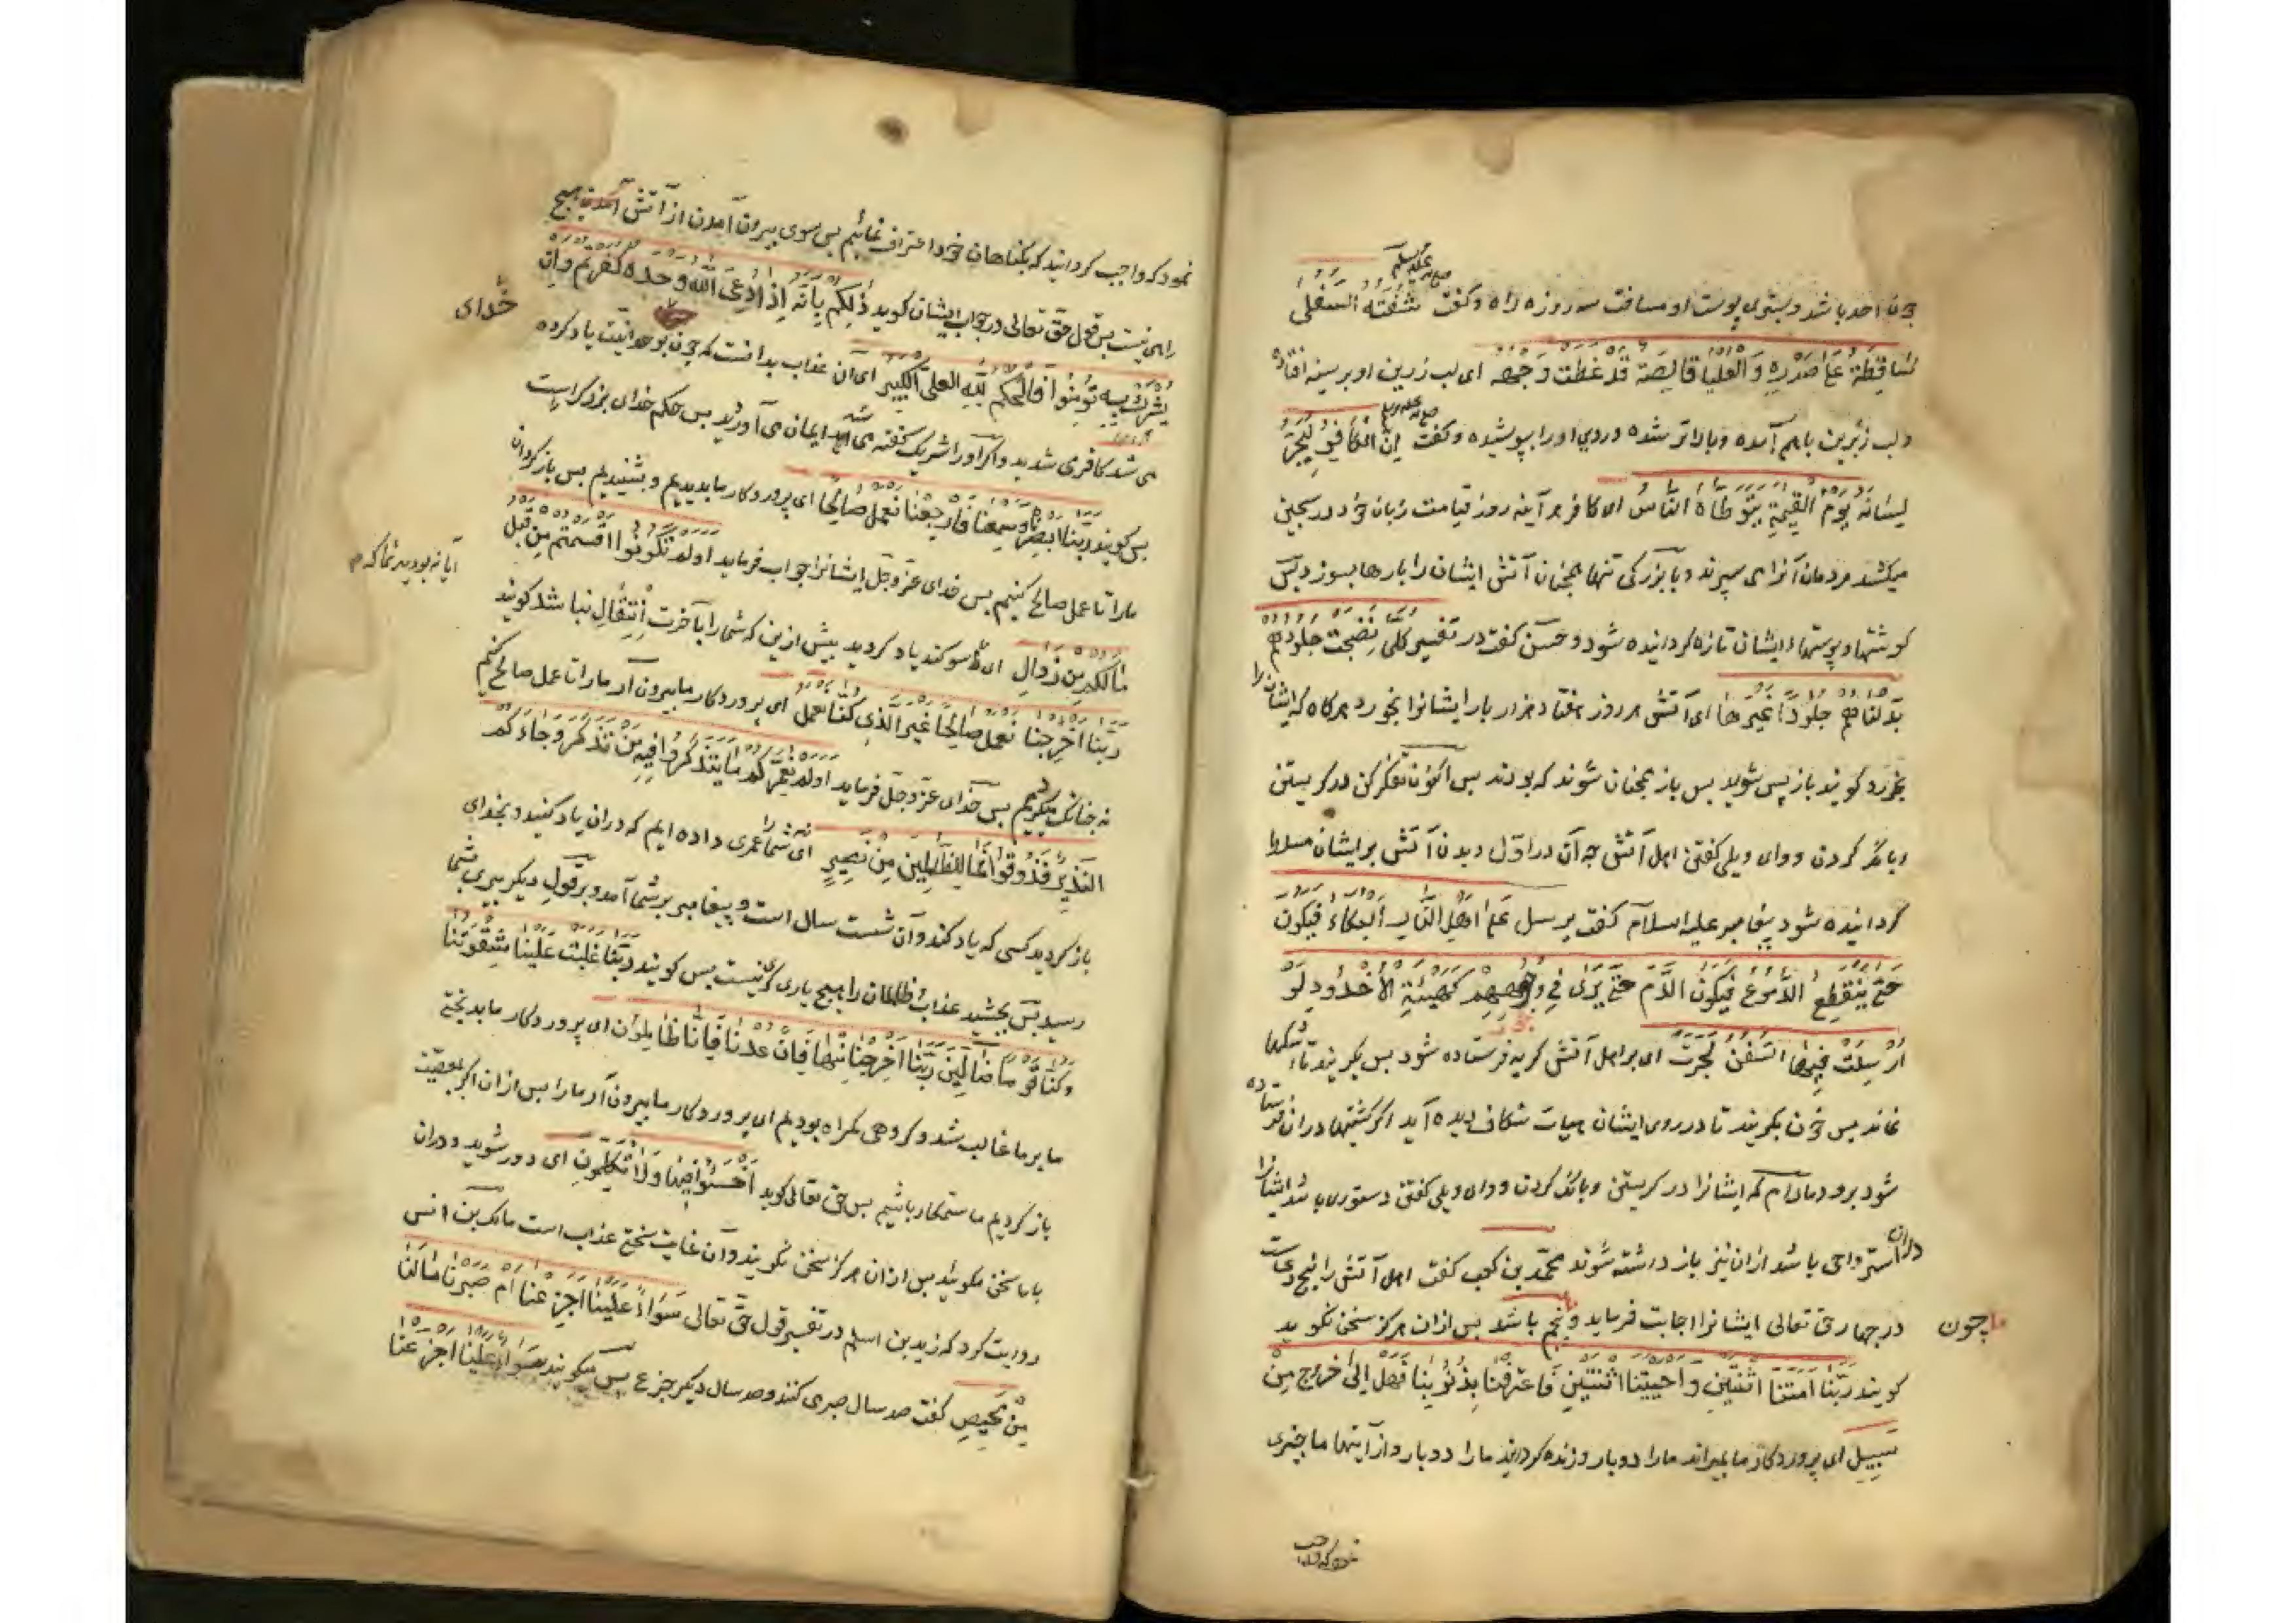 چون احد باشد و سبتری پوست او مسافت سه روزه راه و گفت صلی الله علیه وسلم شفته السفلی
ساقطة علی صدره و العلیا قالصة قد غطت وجهه ای لب زیرین او بر سینه افتاده
و لب زبرین باهم آمده و بالاتر شده و روی او را بپوشیده و گفت صلی الله علیه وسلم ان الکافر لیجر
لسانه یوم القیمة یتوطاه الناس ای کافر هر آینه روز قیامت زبان خود در سجین
میکشد مردمان آنرا می سپرند و با بزرگی تنها همچنان آتش ایشان را بارها بسوزد پس
گوشتها و پوستهاء ایشان تازه گردانیده شود و حسن گفت در تفسیر کلما نضجت جلودهم
بدلناهم جلودا غیرها ای آتش هر روز هفتاد هزار بار ایشانرا بخورد هرگاه که ایشان را
بخورد گویند باز پس شوید پس باز همچنان شوند که بودند پس اکنون تفکر کن در گریستن
و بانگ کردن و وای ویلی گفتن اهل آتش چه آن در اول دیدن آتش بر ایشان مسلط
گردانیده شود پیغامبر علیه السلام گفت یرسل علی اهل النار البکاء فیبکون
حتی ینقطع الدموع فیبکون الدم حتی یری فی وجوههم کهیئة الاخدود لو
ارسلت فیها السفن لجرت ای بر اهل آتش گریه فرستاده شود پس بگریند تا اشکها
نماند پس خون بگریند تا در روی ایشان هیات شکاف دیده آید اگر کشتیها دران فرستاده
شود برود و مادام که ایشانرا در گریستن و بانگ کردن و وای ویلی گفتن دستوری باشد ایشانرا
دران استرواحی باشد ازان نیز باز داشته شوند محمد بن کعب گفت اهل آتش را پنج دعاست
در چهار حق تعالی ایشانرا اجابت فرماید و چون پنجم باشد پس ازان هرگز سخن نگویند
گویند ربنا امتنا اثنتین و احییتنا اثنتین فاعترفنا بذنوبنا فهل الی خروج من
سبیل ای پروردگار ما بمیراند ما را دو بار و زنده گرداند ما را دو بار و از اینها ما چیزی
نمود که واجب گردانید که بگناهان خود اعتراف نمائیم پس سوی بیرون آمدن از آتش هیچ
راهی نیست پس قول حق تعالی در جواب ایشان گوید ذلکم بانه اذا دعی الله وحده کفرتم و ان
یشرک به تؤمنوا فالحکم لله العلی الکبیر ای آن عذاب بدانست که چون خدای بوحدانیت یاد کرده
می شد کافر می شدید و اگر او را شریک گفته می شد ایمان می آوردید پس حکم خدای بزرگ راست
پس گویند ربنا ابصرنا و سمعنا فارجعنا نعمل صالحا ای پروردگار ما بدیدیم و بشنیدیم پس باز گردان
ما را تا عمل صالح کنیم پس خدای عز و جل ایشانرا جواب فرماید اولم تکونوا اقسمتم من قبل
ما لکم من زوال ای آیا نه بودید شما که سوگند یاد کردید پیش ازین که شما را بآخرت انتقال نباشد گویند
ربنا اخرجنا نعمل صالحا غیر الذی کنا نعمل ای پروردگار ما بیرون آر ما را تا عمل صالح کنیم
نه چنانک میکردیم پس خدای عز و جل فرماید اولم نعمرکم ما یتذکر فیه من تذکر و جاءکم
النذیر فذوقوا فما للظالمین من نصیر ای نه شما را عمری داده ایم که دران یاد کنید و بخدای
باز گردید کسی که یاد کند و آن شست سال است و پیغامبر بر شما آمد و بر قول دیگر پیری بشما
رسید پس بچشید عذاب ظالمان را هیچ یاری گری نیست پس گویند ربنا غلبت علینا شقوتنا
و کنا قوما ضالین ربنا اخرجنا منها فان عدنا فانا ظالمون ای پروردگار ما بدبختی
ما بر ما غالب شد و گروهی گمراه بودیم ای پروردگار ما بیرون آر ما را پس ازان اگر بمعصیت
باز گردیم ما ستمکار باشیم پس حق تعالی گوید اخسئوا فیها و لا تکلمون ای دور شوید و دران
با ما سخن مگوئید پس ازان هرگز سخن نگویند و آن غایت سختی عذاب است مالک بن انس
روایت کرد که زید بن اسلم در تفسیر قول حق تعالی سواء علینا اجزعنا ام صبرنا ما لنا
من محیص گفت صد سال صبری کنند و صد سال دیگر جزع پس میگویند سواء علینا اجزعنا